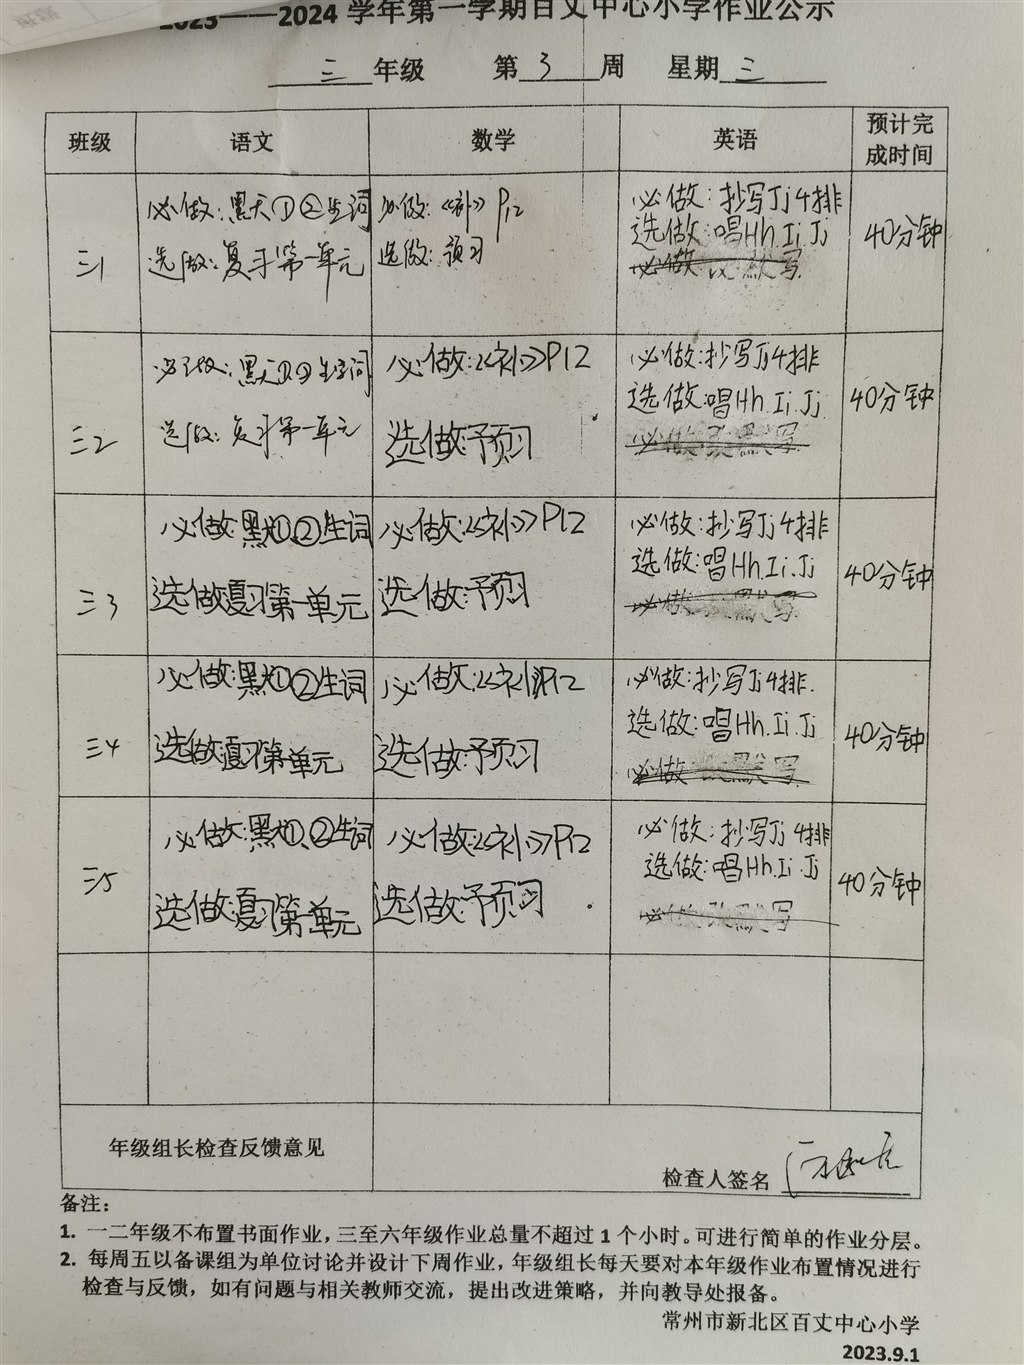 2023——2024 学年第一学期百丈中心小学作业公示
三 年级 第 3 周 星期 三
班级 语文 数学 英语 预计完成时间
三1
必做：默大①②生词
选做：复习第一单元
必做：《补》P12
选做：预习
必做：抄写Jj4排
选做：唱Hh.Ii.Jj
必做 默写
40分钟
三2
必做：默大①②生字词
选做：复习第一单元
必做：《补》P12
选做：预习
必做：抄写Jj4排
选做：唱Hh.Ii.Jj
必做 默写
40分钟
三3
必做：默大①、②生词
选做：复习第一单元
必做：《补》P12
选做：预习
必做：抄写Jj4排
选做：唱Hh.Ii.Jj
必做 默写
40分钟
三4
必做：默大①②生词
选做：复习第一单元
必做：《补》P12
选做：预习
必做：抄写Jj4排.
选做：唱Hh.Ii.Jj
必做 默写
40分钟
三5
必做：默大①、②生词
选做：复习第一单元
必做：《补》P12
选做：预习
必做：抄写Jj 4排
选做：唱Hh.Ii.Jj
必做 默写
40分钟
年级组长检查反馈意见
检查人签名
备注：
1. 一二年级不布置书面作业，三至六年级作业总量不超过 1 个小时。可进行简单的作业分层。
2. 每周五以备课组为单位讨论并设计下周作业，年级组长每天要对本年级作业布置情况进行
检查与反馈，如有问题与相关教师交流，提出改进策略，并向教导处报备。
常州市新北区百丈中心小学
2023.9.1